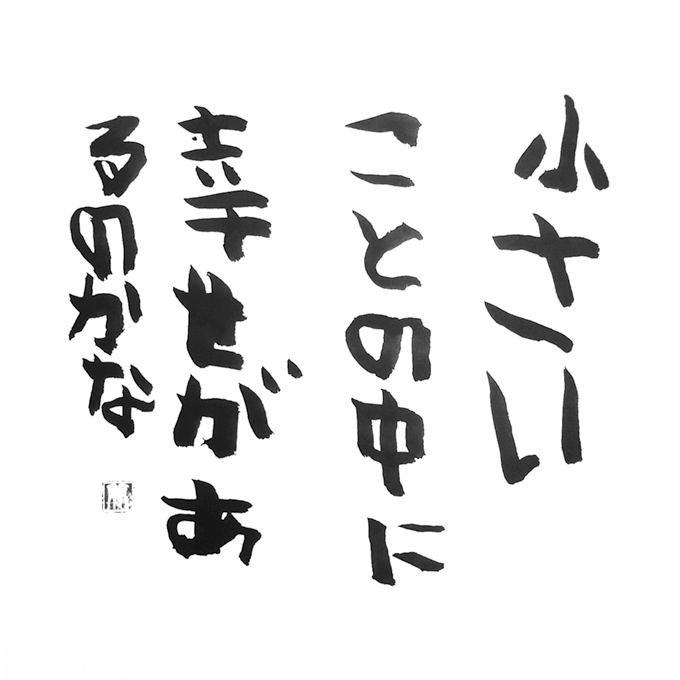 小さい
ことの中に
幸せがあ
るのかな